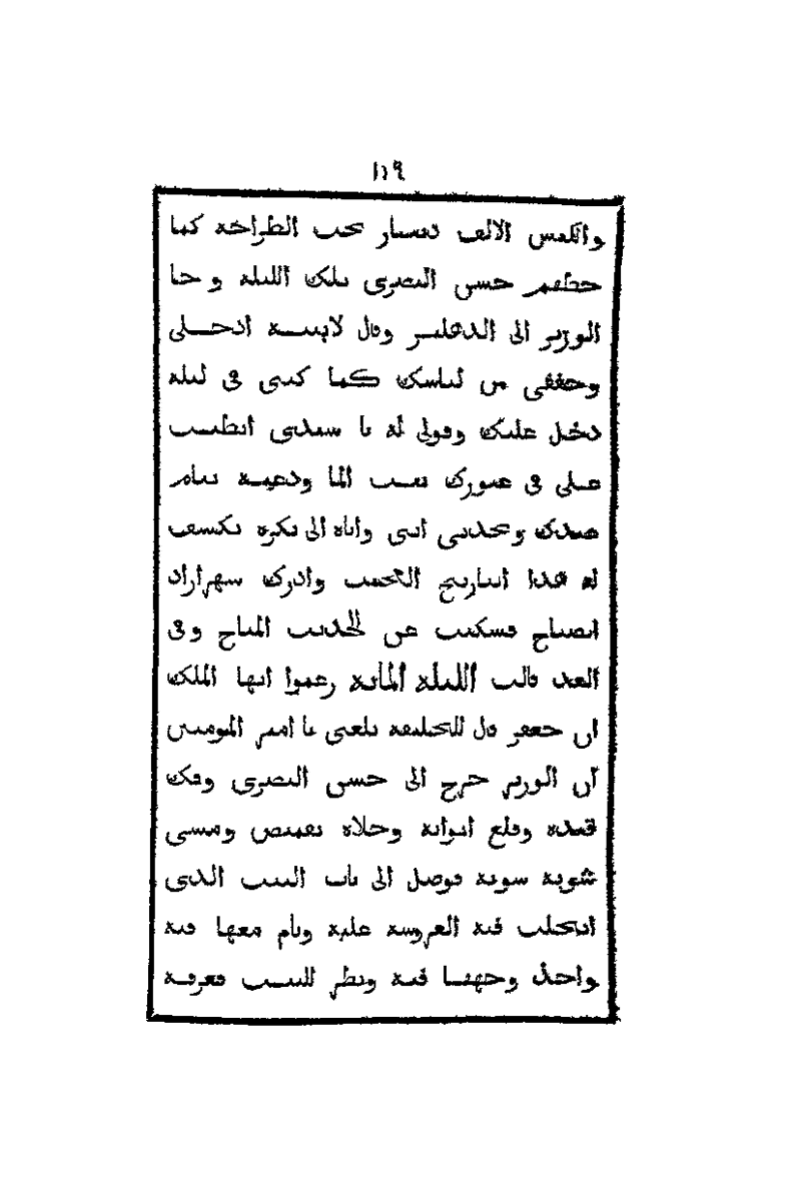 ١١٩
والكيس الالف دينار تحت الطراحه كما
حطهم حسن البصرى تلك الليله وجا
الوزير الى الدهليز وقال لابنـــته ادخـــلى
وخففى من لباسك كما كنتى فى ليله
دخل عليك وقولى له يا سيدى ابطيت
عـلى فى عبورك بيـت الما ودعيـه ينام
عندك وتحدثى انتى واياه الى بكره نكشف
له هذا التاريخ العجيب وادرك شهرازاد
الصباح فسكتت عن الحديث المباح وفى
الغد قالت الليله المايه زعموا ايها الملك
ان جعفر قال للخليفه بلغنى يا امير المومنين
ان الوزير خرج الى حسن البصرى وفك
قيده وقلع اثوابه وخلاه بقميص ومشى
شويه شويه فوصل الى باب البيت الذى
انجلت فيه العروسه عليه ونام معها فيه
واخذ وجهها فيه ونظر للبيـــت فعرفـه